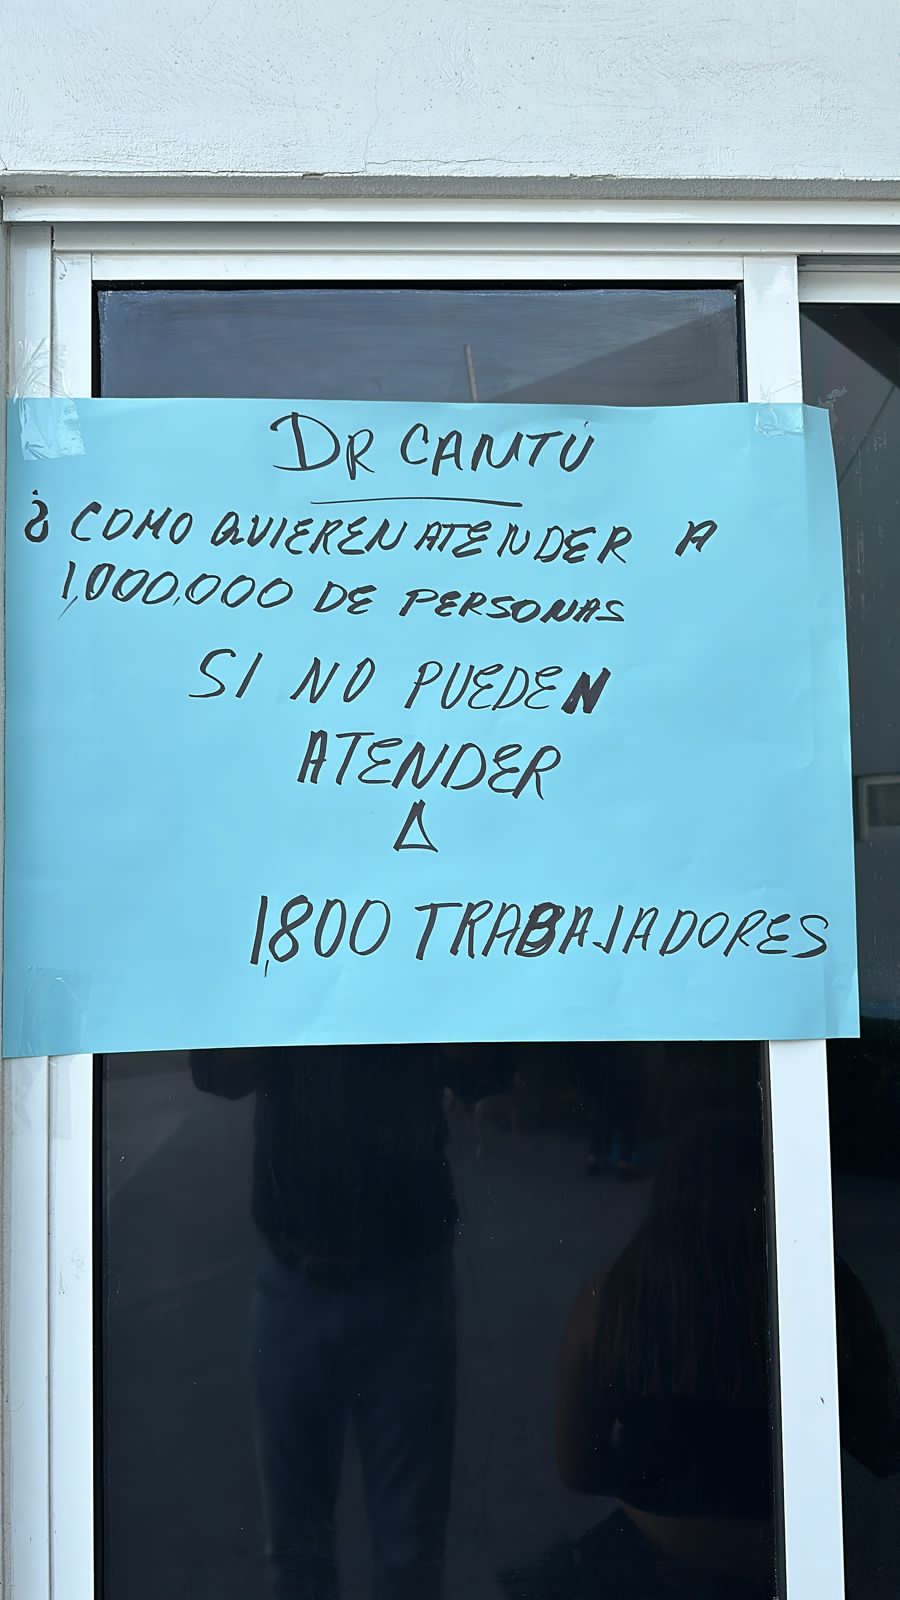 DR CANTÚ
¿COMO QUIEREN ATENDER A
1,000,000 DE PERSONAS
SI NO PUEDEN
ATENDER
A
1,800 TRABAJADORES